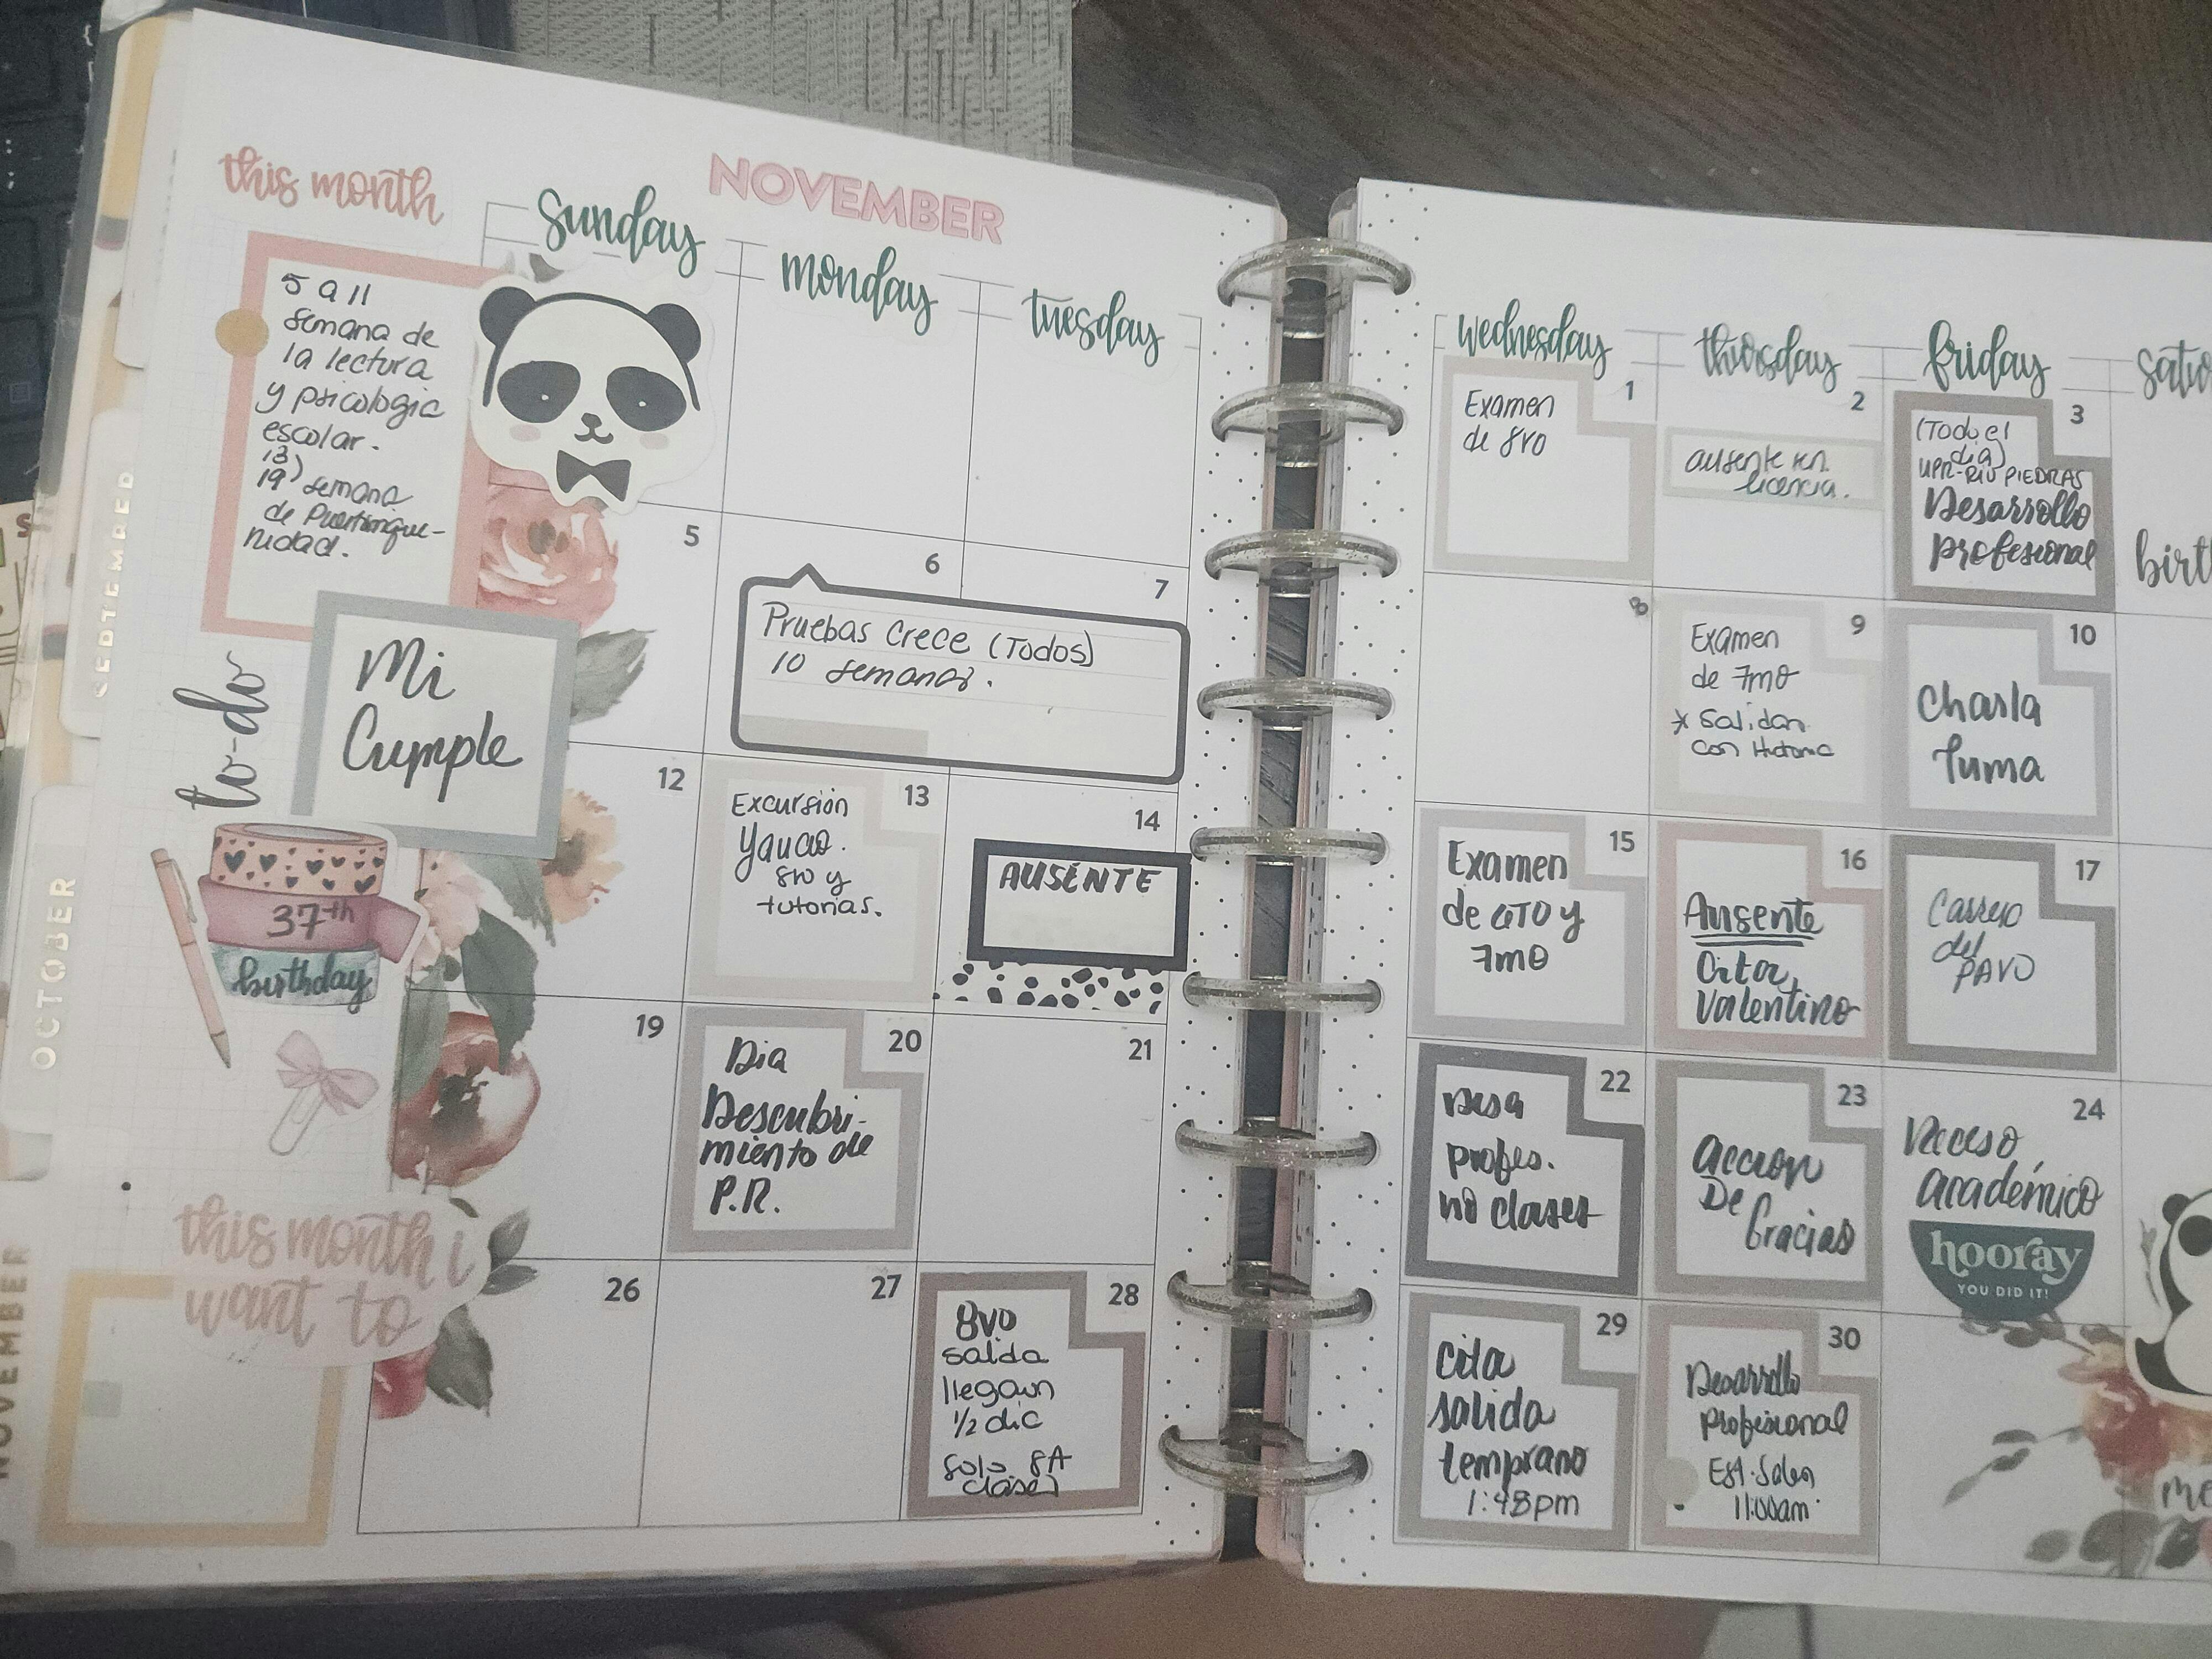 this month
NOVEMBER
sunday
monday
tuesday
wednesday
thursday
friday
5 a 11
semana de
la lectura
y psicologia
escolar.
13)
19) semana
de Puertorrique-
nidad.
to-do
Mi
Cumple
37th
birthday
this month i
want to
SEPTEMBER
OCTOBER
NOVEMBER
1
Examen
de 8vo
2
ausente en
licencia.
3
(Todo el
dia)
UPR-RIO PIEDRAS
Desarrollo
profesional
5
6
7
Pruebas Crece (Todos)
10 semanas.
8
9
Examen
de 7mo
* Salidan
con
10
Charla
Tuma
12
13
Excursión
Yauco.
8vo y
tutorias.
14
AUSENTE
15
Examen
de 6TO y
7mo
16
Ausente
Cita
Valentino
17
Carrera
del
PAVO
19
20
Dia
Descubri-
miento de
P.R.
21
22
Desa
profes.
no clases
23
Accion
De
Gracias
24
Receso
Académico
hooray
YOU DID IT!
26
27
28
8vo
salida
llegaun
1/2 dia
Solo 8A
clases
29
Cita
salida
temprano
1:48pm
30
Desarrollo
profesional
Est. Salen
11:00am